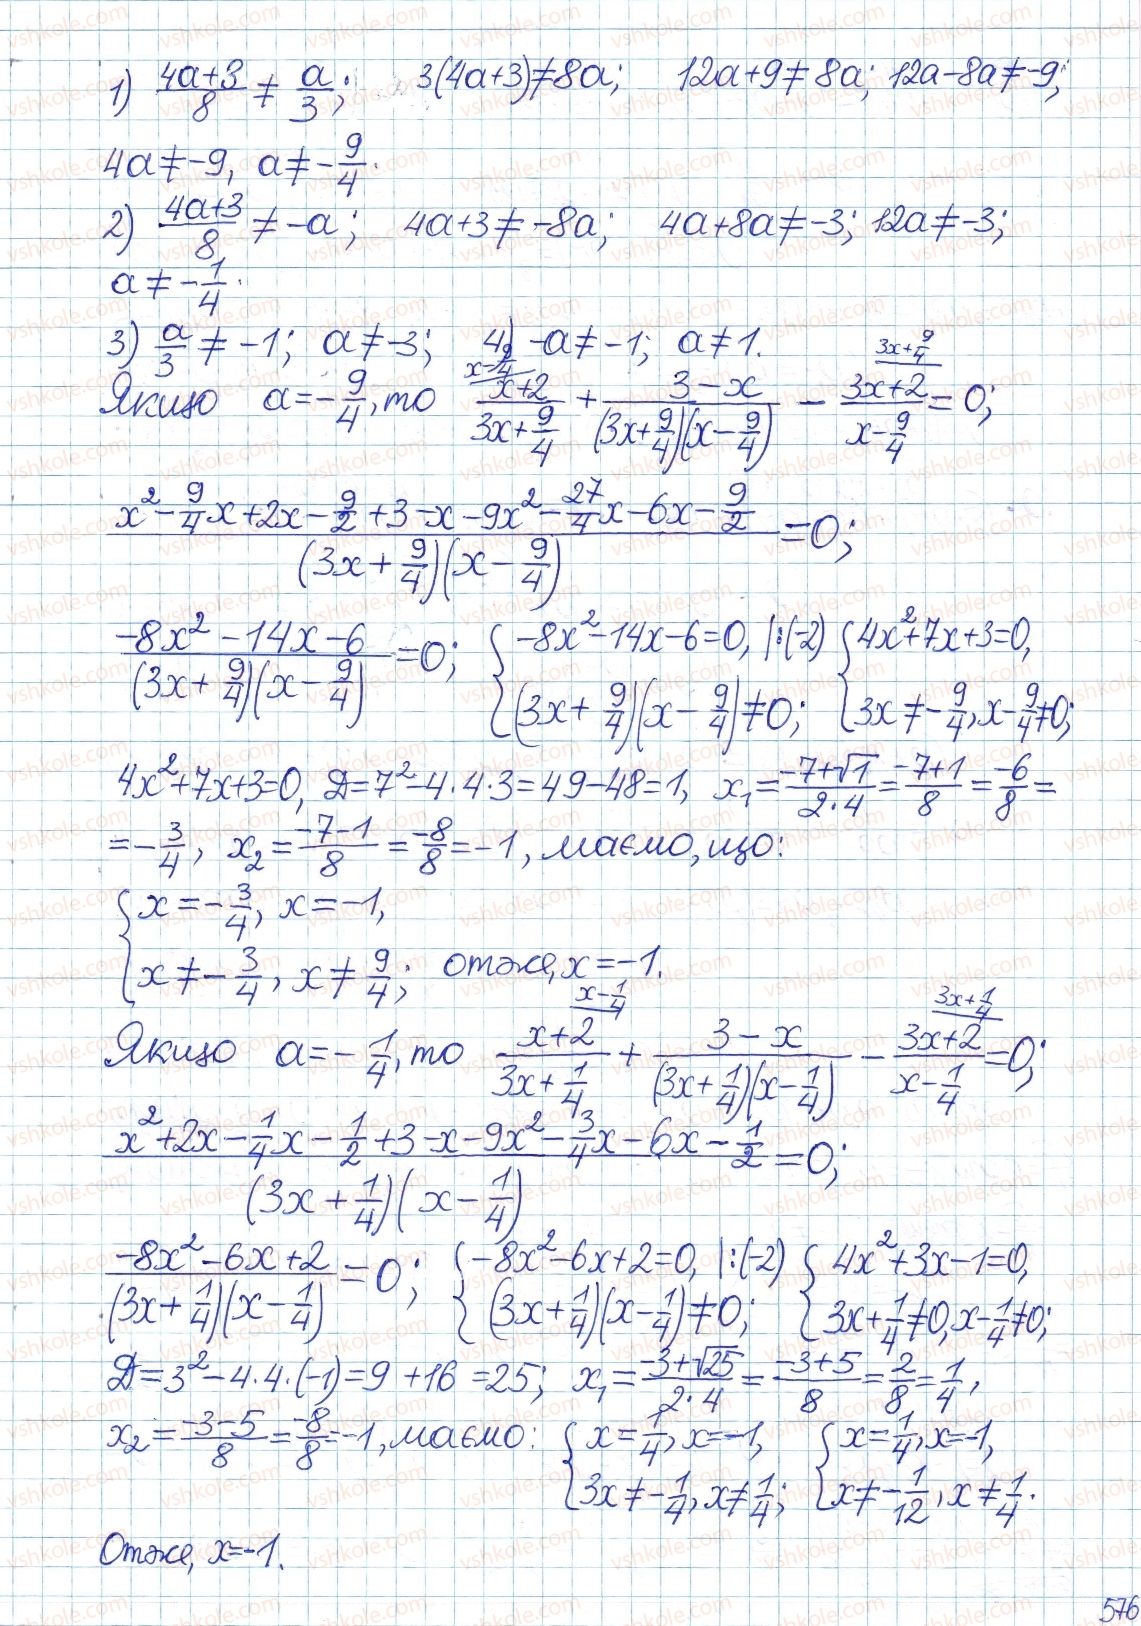 1) (4a+3)/8 ≠ a/3; 3(4a+3)≠8a; 12a+9≠8a; 12a-8a≠-9;
4a≠-9, a≠-9/4.
2) (4a+3)/8 ≠ -a; 4a+3≠-8a; 4a+8a≠-3; 12a≠-3;
a≠-1/4.
3) a/3 ≠ -1; a≠-3; 4) -a≠-1; a≠1.
Якщо a=-9/4, то (x+2)/(3x+9/4) (x-9/4) + (3-x)/((3x+9/4)(x-9/4)) - (3x+2)/(x-9/4) (3x+9/4) = 0;
(x²-9/4x+2x-9/2+3-x-9x²-27/4x-6x-9/2)/((3x+9/4)(x-9/4)) = 0;
(-8x²-14x-6)/((3x+9/4)(x-9/4)) = 0; { -8x²-14x-6=0, |:(-2) { 4x²+7x+3=0,
(3x+9/4)(x-9/4)≠0; 3x≠-9/4, x-9/4≠0;
4x²+7x+3=0, Д=7²-4·4·3=49-48=1, x₁=(-7+√1)/(2·4)=(-7+1)/8=-6/8=
=-3/4, x₂=(-7-1)/8=-8/8=-1, маємо, що:
{ x=-3/4, x=-1,
x≠-3/4, x≠9/4; отже, x=-1.
Якщо a=-1/4, то (x+2)/(3x+1/4) (x-1/4) + (3-x)/((3x+1/4)(x-1/4)) - (3x+2)/(x-1/4) (3x+1/4) = 0;
(x²+2x-1/4x-1/2+3-x-9x²-3/4x-6x-1/2)/((3x+1/4)(x-1/4)) = 0;
(-8x²-6x+2)/((3x+1/4)(x-1/4)) = 0; { -8x²-6x+2=0, |:(-2) { 4x²+3x-1=0,
(3x+1/4)(x-1/4)≠0; 3x+1/4≠0, x-1/4≠0;
Д=3²-4·4·(-1)=9+16=25; x₁=(-3+√25)/(2·4)=(-3+5)/8=2/8=1/4,
x₂=(-3-5)/8=-8/8=-1, маємо: { x=1/4, x=-1, { x=1/4, x=-1,
3x≠-1/4, x≠1/4; x≠-1/12, x≠1/4.
Отже, x=-1.
576
vshkole.com